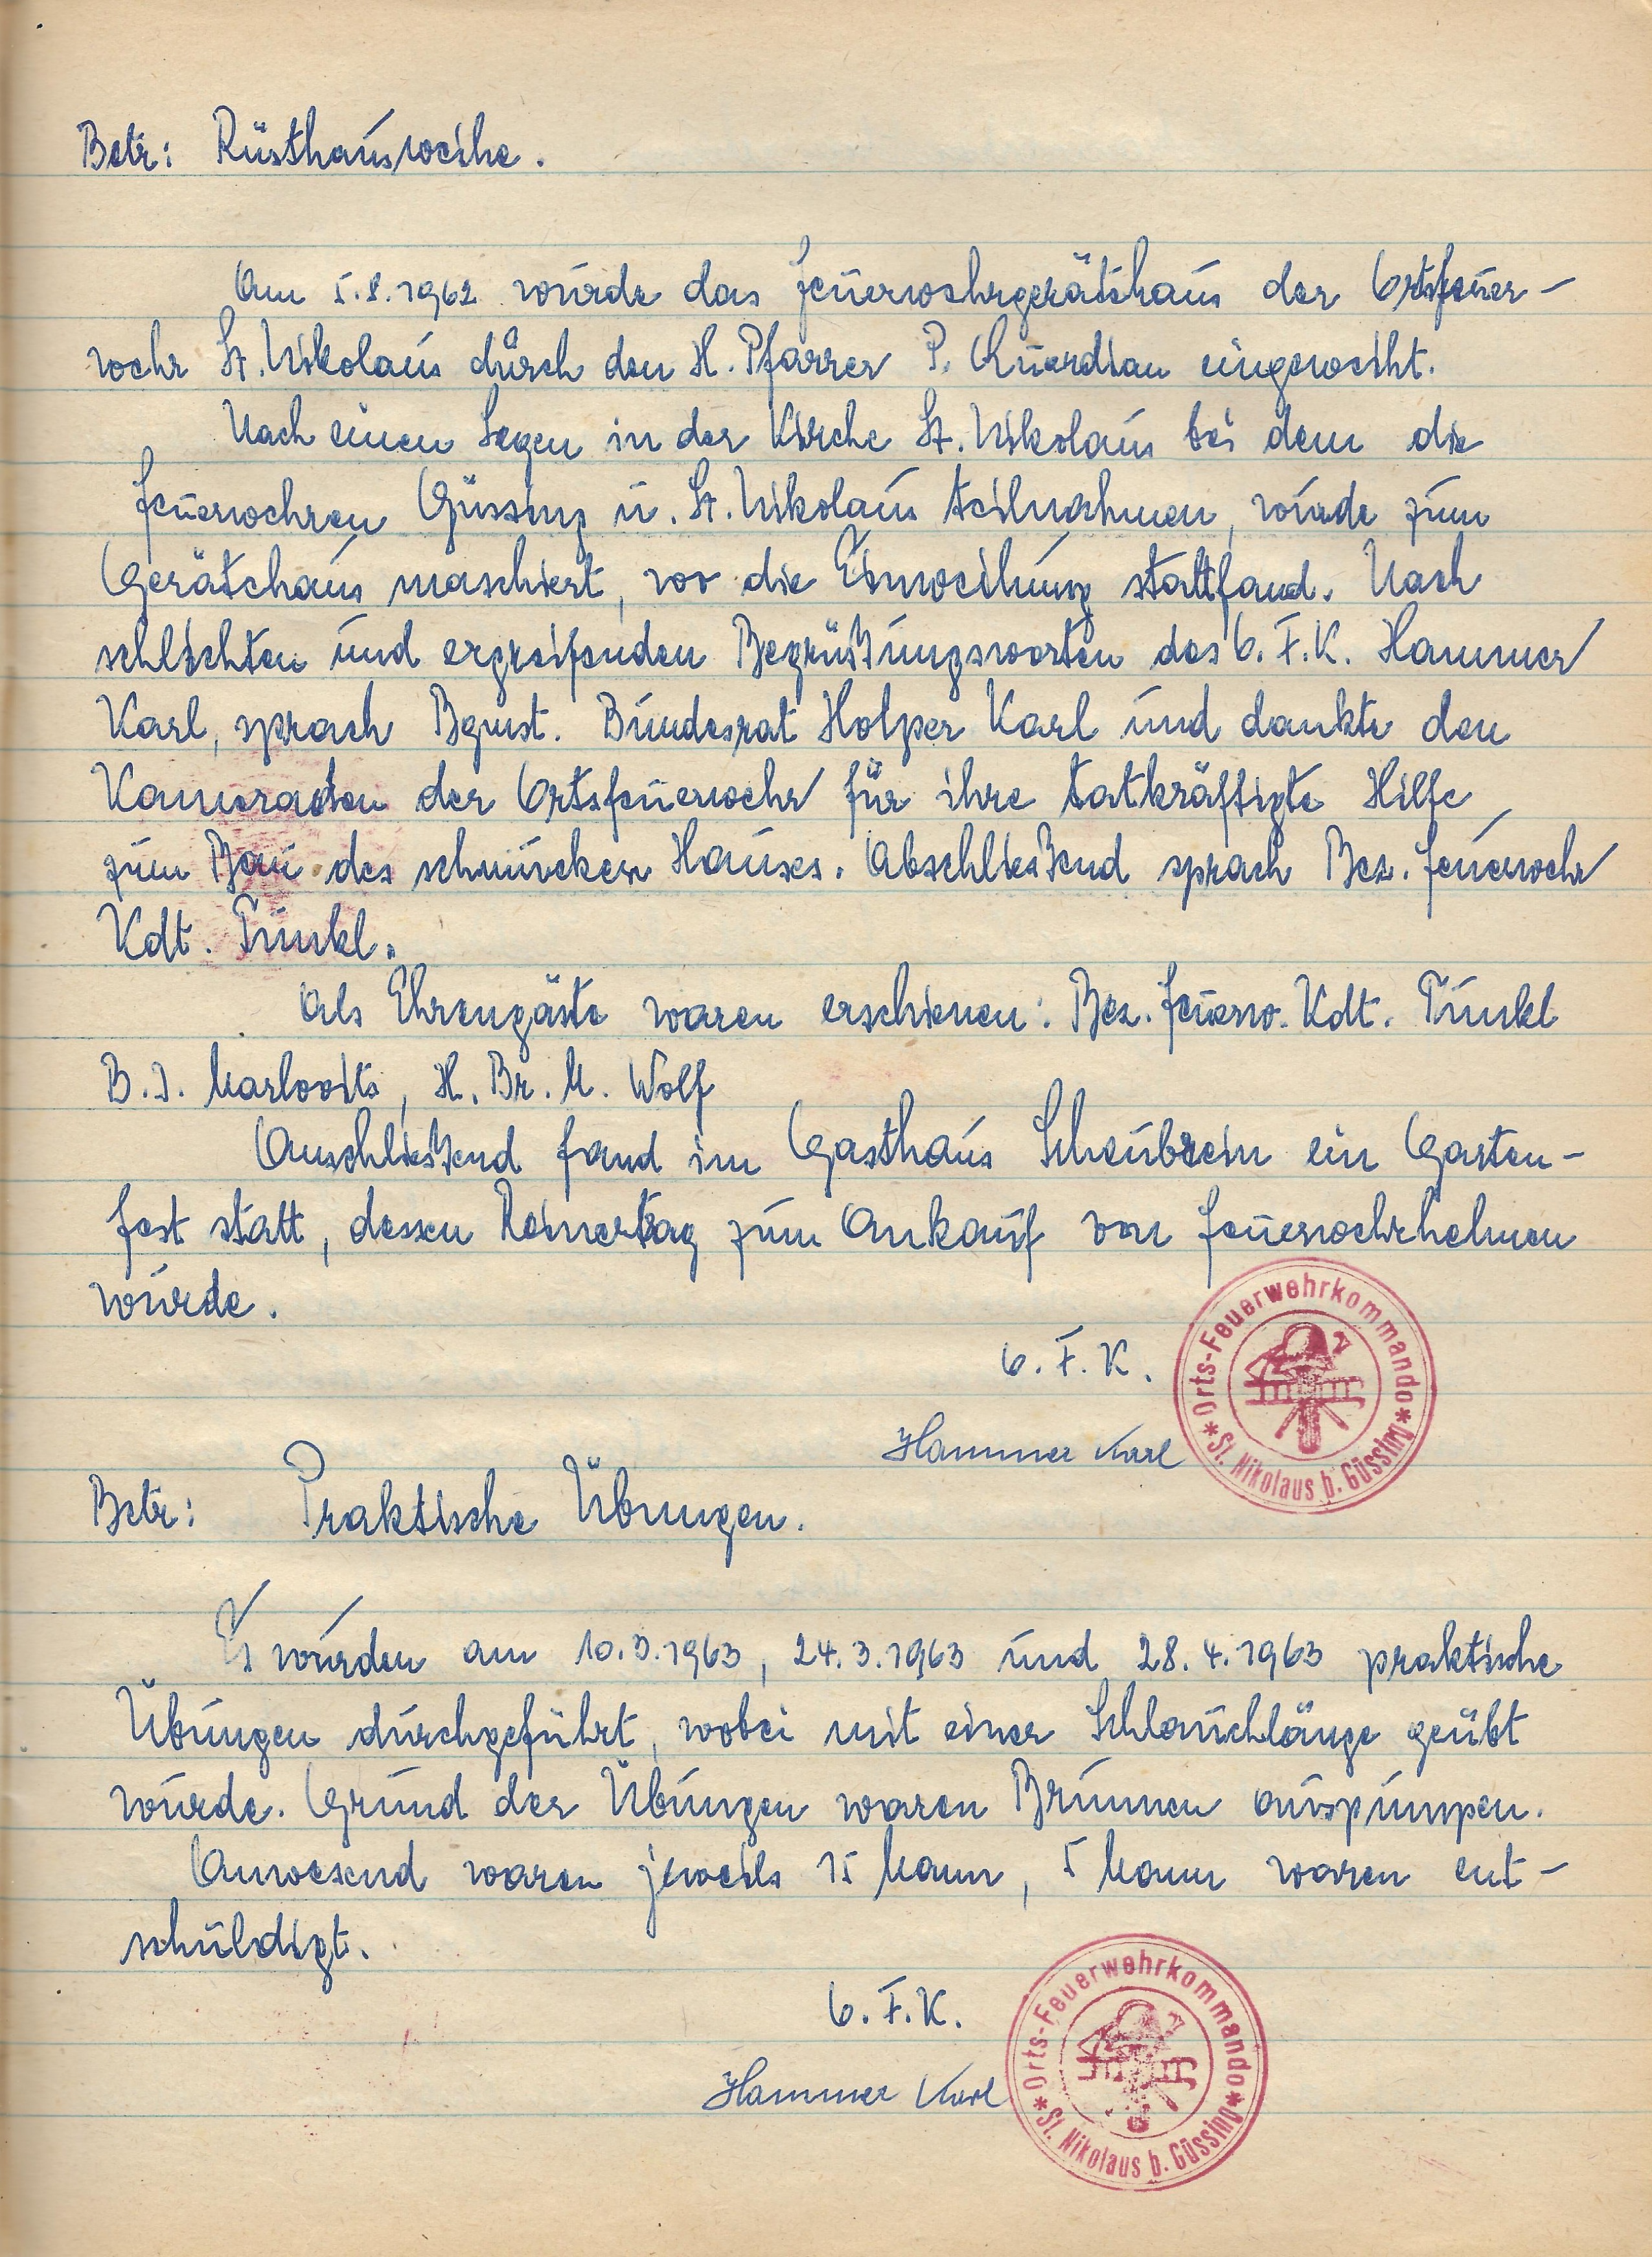 Betr: Rüsthausweihe.
Am 5.8.1962 wurde das Feuerwehrgerätehaus der Ortsfeuer-
wehr St. Nikolaus durch den H. Pfarrer P. Quardian eingeweiht.
Nach einen Segen in der Kirche St. Nikolaus bei dem die
Feuerwehren Güssing u. St. Nikolaus teilnahmen, wurde zum
Gerätehaus maschiert, wo die Einweihung stattfand. Nach
schlichten und ergreifenden Begrüßungsworten des O.F.K. Hammer
Karl, sprach Bgmst. Bundesrat Holper Karl und dankte den
Kameraden der Ortsfeuerwehr für ihre tatkräftigte Hilfe
zum Bau des schmucken Hauses. Abschließend sprach Bez. Feuerwehr
Kdt. Tunkl.
Als Ehrengäste waren erschienen: Bez. Feuerw. Kdt. Tunkl
B.I. Marlovits, H. Br. M. Wolf
Anschließend fand im Gasthaus Scheubrein ein Garten-
fest statt, dessen Reinertrag zum Ankauf von Feuerwehrhelmen
wurde.
O.F.K.
Hammer Karl
* Orts-Feuerwehrkommando * St. Nikolaus b. Güssing
Betr: Praktische Übungen.
Es wurden am 10.3.1963, 24.3.1963 und 28.4.1963 praktische
Übungen durchgeführt, wobei mit einer Schlauchlänge geübt
wurde. Grund der Übungen waren Brunnen auspumpen.
Anwesend waren jeweils 15 Mann, 5 Mann waren ent-
schuldigt.
O.F.K.
Hammer Karl
* Orts-Feuerwehrkommando * St. Nikolaus b. Güssing